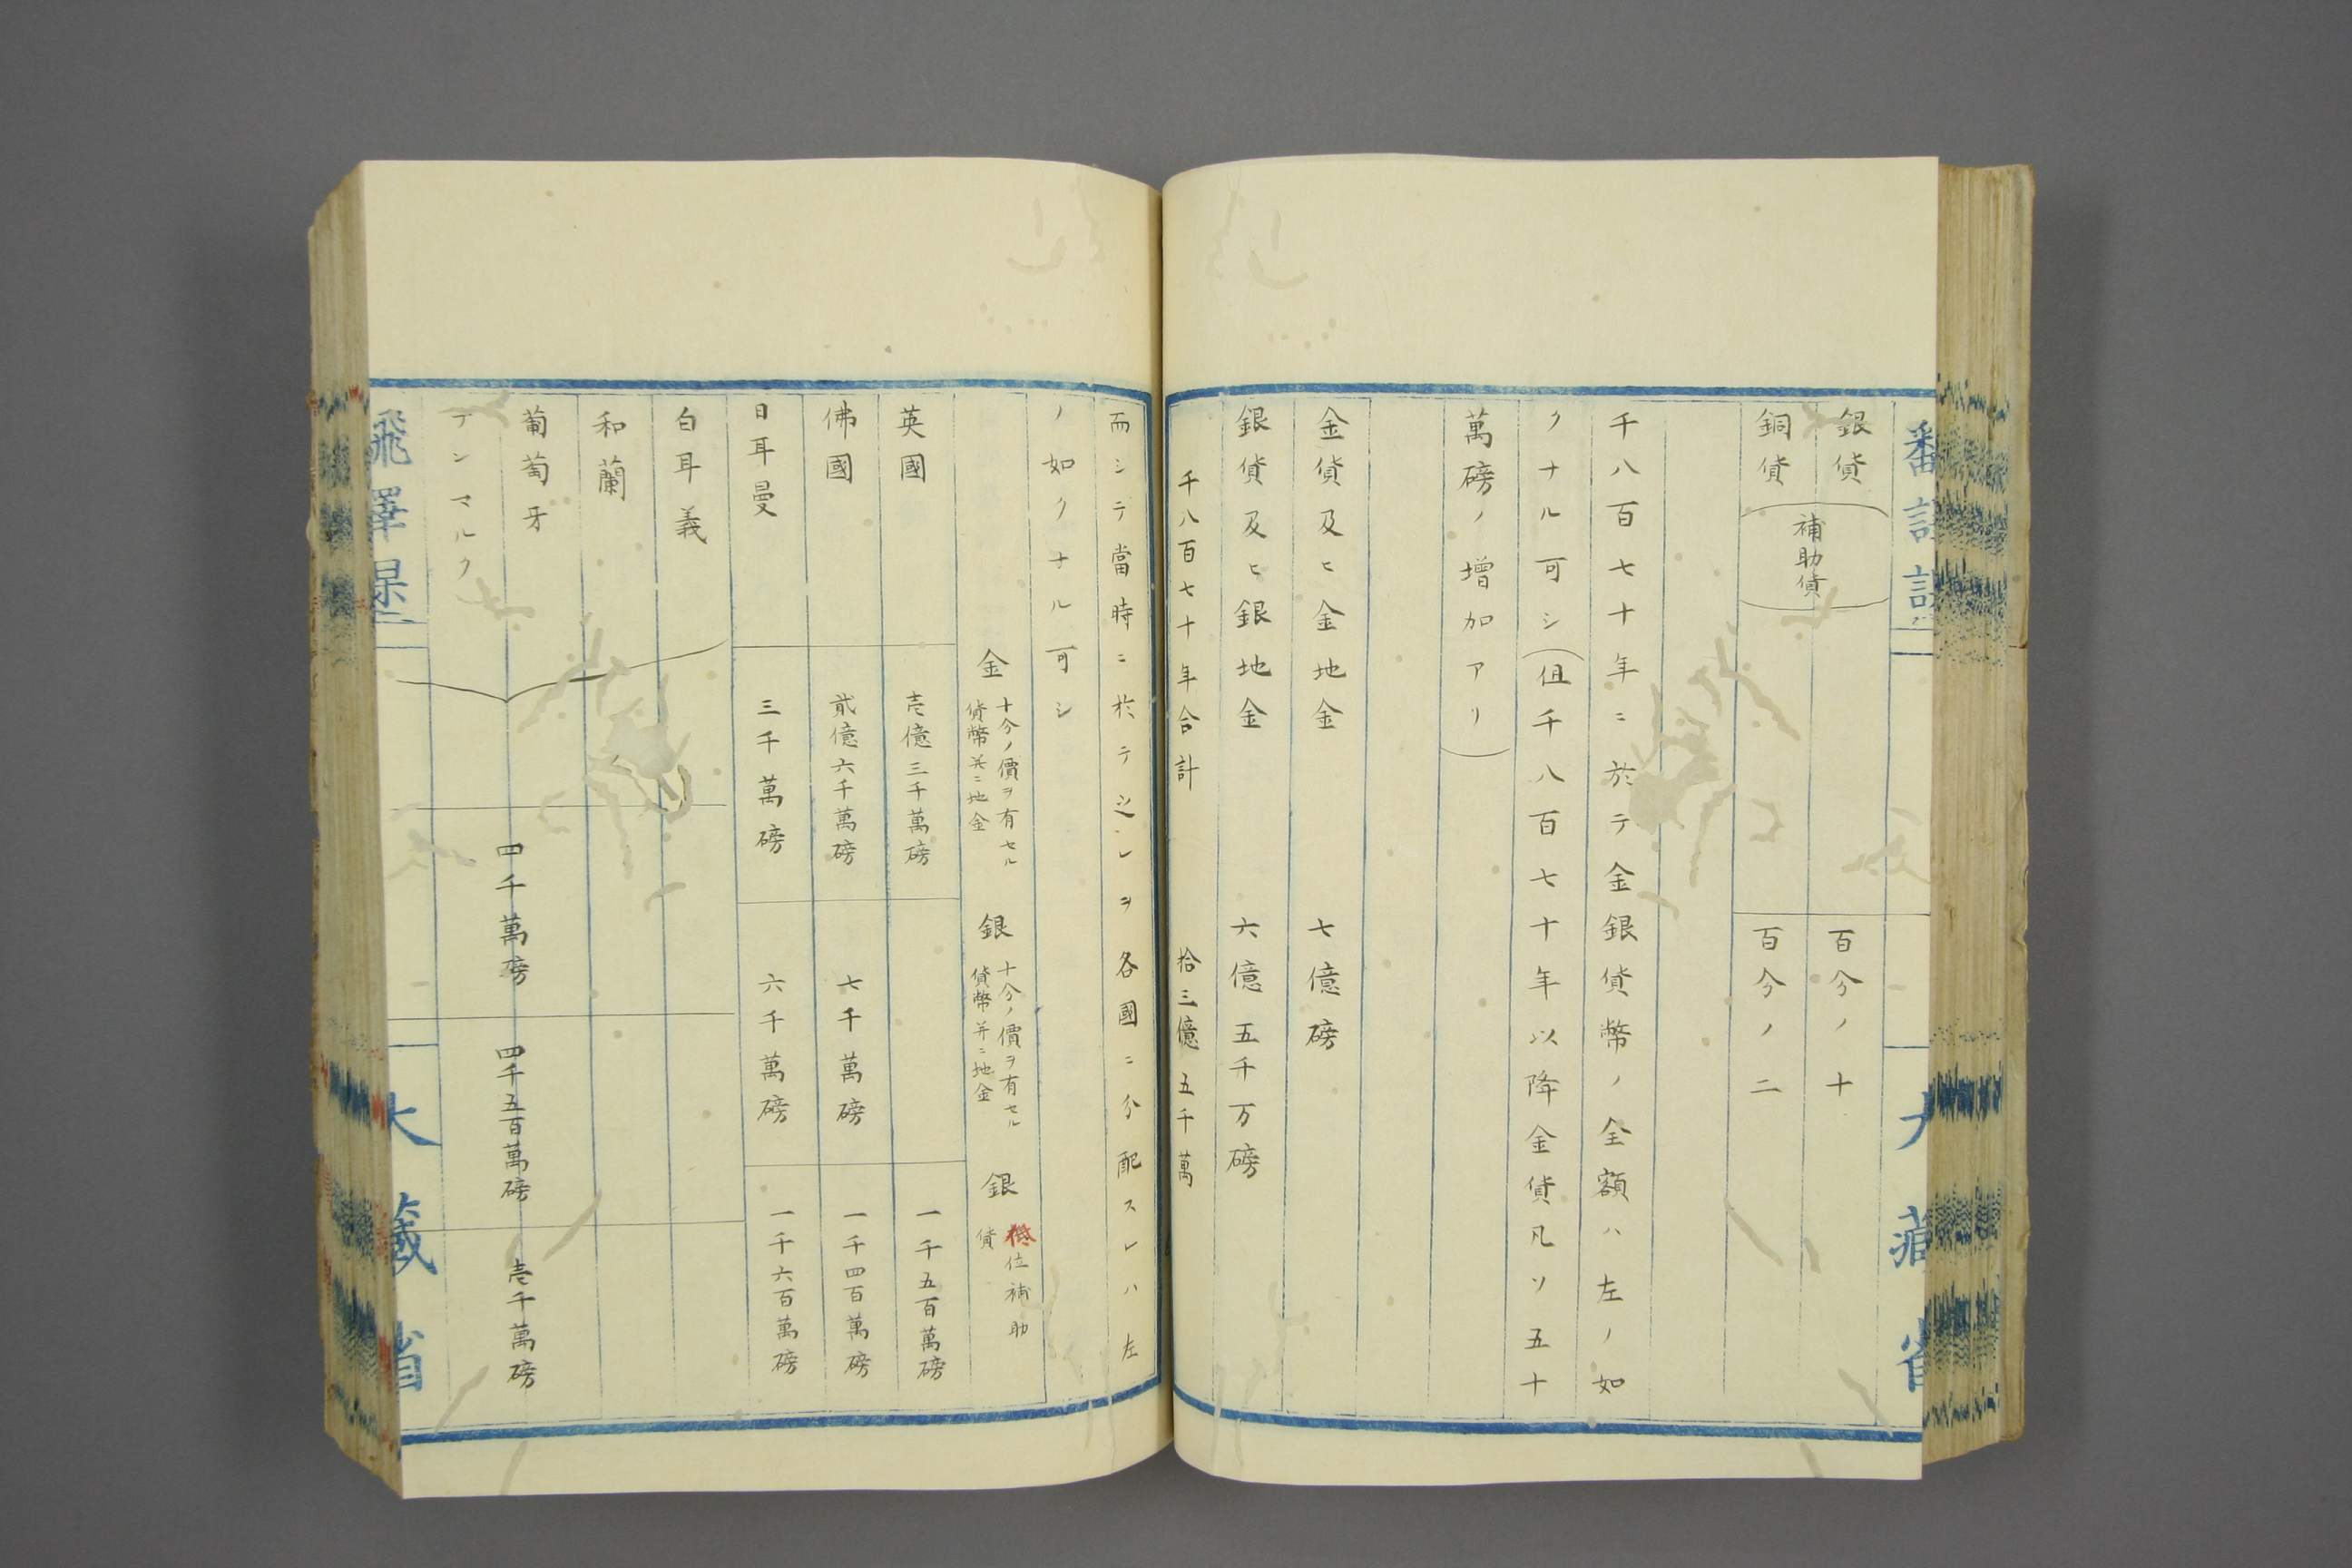 銀貨 百分ノ十
銅貨 百分ノ二
補助貨
千八百七十年ニ於テ金銀貨幣ノ全額ハ左ノ如
クナル可シ(但千八百七十年以降金貨凡ソ五十
萬磅ノ增加アリ)
金貨及ヒ金地金 七億磅
銀貨及ヒ銀地金 六億五千万磅
千八百七十年合計 拾三億五千萬
而シテ當時ニ於テ之レヲ各國ニ分配スレハ左
ノ如クナル可シ
金 十分ノ價ヲ有セル貨幣并ニ地金 銀 十分ノ價ヲ有セル貨幣并ニ地金 銀 低位補助貨
英國 壱億三千萬磅 一千五百萬磅
佛國 貳億六千萬磅 七千萬磅 一千四百萬磅
日耳曼 三千萬磅 六千萬磅 一千六百萬磅
白耳義
和蘭
葡萄牙 四千萬磅 四千五百萬磅 壱千萬磅
デンマルク
大藏省